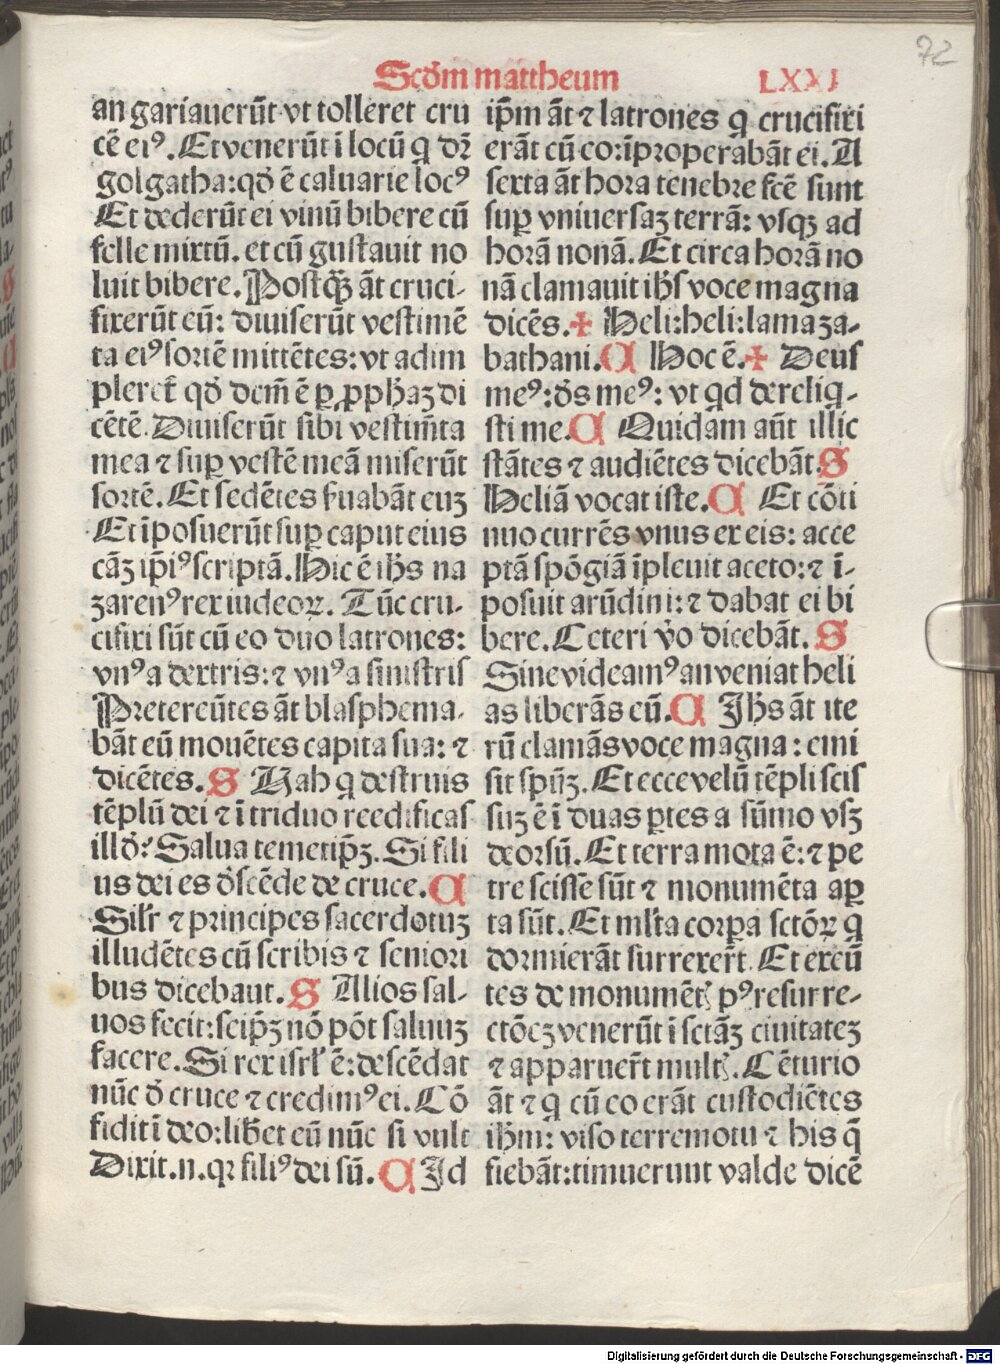 72
Scd̄m mattheum LXXI
an gariauerūt vt tolleret cru
cē eiꝰ. Et venerūt ī locū q̄ dr̄
golgatha: qđ ē caluarie locꝰ
Et dederūt ei vinū bibere cū
felle mixtū. et cū gustauit no
luit bibere. Postq̄ʒ āt cruci-
fixerūt eū: diuiserūt vestimē
ta eiꝰ sortē mittētes: vt adim
pleret̄ qđ dcm̄ ē ꝑ ꝓphaʒ di
cētē. Diuiserūt sibi vestim̄ta
mea ⁊ suꝑ vestē meā miserūt
sortē. Et sedētes s̄uabāt euʒ
Et īposuerūt suꝑ caput eius
cāʒ ip̄iꝰ scriptā. Hic ē ih̄s na
zarenꝰ rex iudeoꝝ. Tūc cru-
cifixi sūt cū eo duo latrones:
vnꝰ a dextris: ⁊ vnꝰ a sinistris
Pretereūtes āt blasphema-
bāt eū mouētes capita sua: ⁊
dicētes. S Uah q̄ destruis
tēplū dei ⁊ ī triduo reedificas
illđ: Salua temetip̄ʒ. Si fili
us dei es đscēde de cruce. C
Silr̄ ⁊ principes sacerdotuʒ
illudētes cū scribis ⁊ seniori
bus dicebaut. S Alios sal-
uos fecit: seip̄ʒ nō pōt saluuʒ
facere. Si rex isrl̄ ē: descēdat
nūc đ cruce ⁊ credimꝰ ei. Cō
fidit ī deo: lib̄et eū nūc si vult
Dixit .n. qꝛ filiꝰ dei sū. C Id
ip̄m āt ⁊ latrones q̄ crucifixi
erāt cū eo: īproperabāt ei. A
sexta āt hora tenebre fcē sunt
suꝑ vniuersaʒ terrā: vsqʒ ad
horā nonā. Et circa horā no
nā clamauit ih̄s voce magna
dicēs. ✠ Heli: heli: lamaza-
bathani. C Hoc ē. ✠ Deus
meꝰ: đs meꝰ: vt qd dereliq̄-
sti me. C Quidam aūt illic
stātes ⁊ audiētes dicebāt. S
Heliā vocat iste. C Et cōti
nuo currēs vnus ex eis: acce
ptā spōgiā īpleuit aceto: ⁊ ī-
posuit arūdini: ⁊ dabat ei bi
bere. Ceteri v̄o dicebāt. S
Sine videamꝰ an veniat heli
as liberās eū. C Ih̄s āt ite
rū clamās voce magna: emi
sit spūʒ. Et ecce velū tēpli scis
suʒ ē ī duas ꝑtes a sūmo vsʒ
deorsū. Et terra mota ē: ⁊ pe
tre scisse sūt ⁊ monumēta aꝑ
ta sūt. Et ml̄ta corꝑa sctōꝝ q̄
dormierāt surrexer̄t. Et exeū
tes de monumēt̄ pꝰ resurre-
ctōeʒ venerūt ī sctāʒ ciuitateʒ
⁊ apparuer̄t mult̄. Cēturio
āt ⁊ q̄ cū eo erāt custodiētes
ih̄m: viso terremotu ⁊ his q̄
fiebāt: timuerunt valde dicē
Digitalisierung gefördert durch die Deutsche Forschungsgemeinschaft - DFG